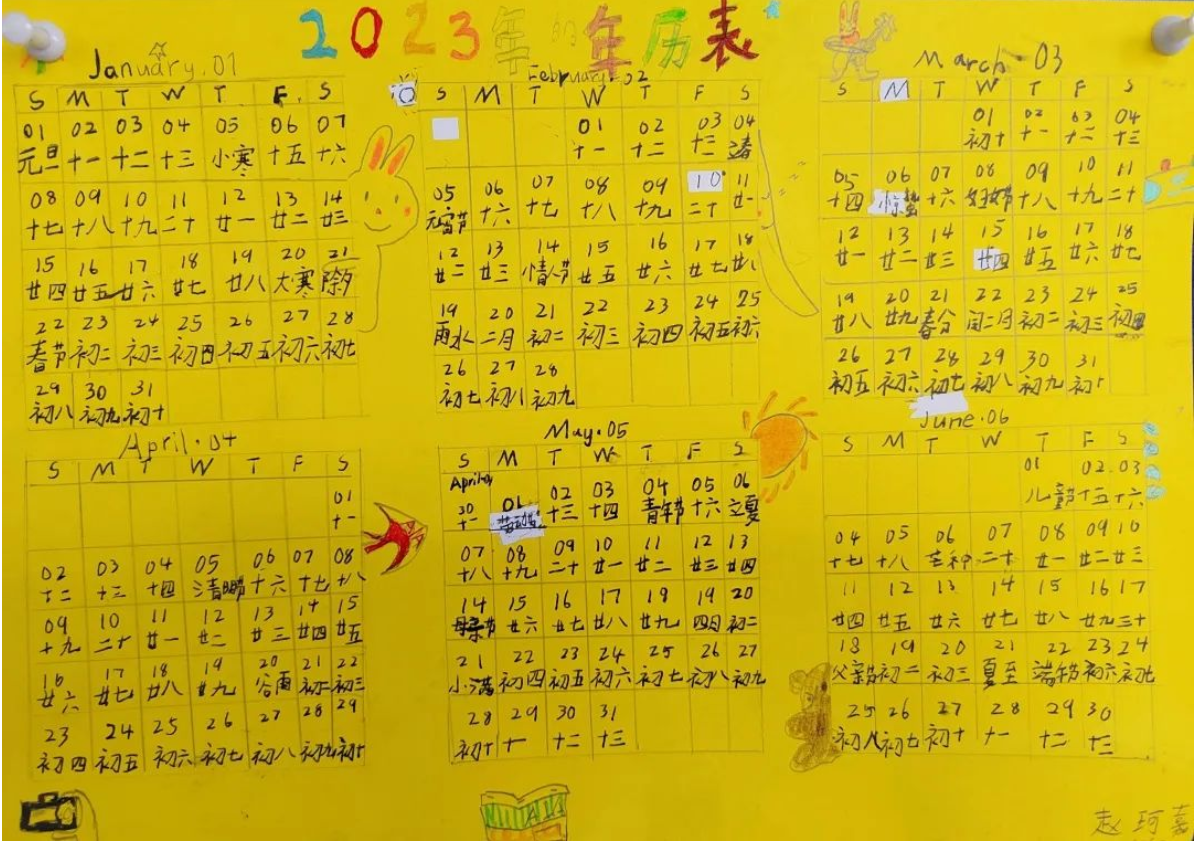 2023年的年历表
January.01
S M T W T F S
01 02 03 04 05 06 07
元旦 十一 十二 十三 小寒 十五 十六
08 09 10 11 12 13 14
十七 十八 十九 二十 廿一 廿二 廿三
15 16 17 18 19 20 21
廿四 廿五 廿六 廿七 廿八 大寒 除夕
22 23 24 25 26 27 28
春节 初二 初三 初四 初五 初六 初七
29 30 31
初八 初九 初十
February.02
S M T W T F S
01 02 03 04
十一 十二 十三
05 06 07 08 09 10 11
元宵节 十六 十七 十八 十九 二十 廿一
12 13 14 15 16 17 18
廿二 廿三 情人节 廿五 廿六 廿七 廿八
19 20 21 22 23 24 25
雨水 二月 初二 初三 初四 初五 初六
26 27 28
初七 初八 初九
March.03
S M T W T F S
01 02 03 04
初十 十一 十二 十三
05 06 07 08 09 10 11
十四 惊蛰 十六 妇女节 十八 十九 二十
12 13 14 15 16 17 18
廿一 廿二 廿三 廿四 廿五 廿六 廿七
19 20 21 22 23 24 25
廿八 廿九 春分 闰二月 初二 初三 初四
26 27 28 29 30 31
初五 初六 初七 初八 初九 初十
April.04
S M T W T F S
01
十一
02 03 04 05 06 07 08
十二 十三 十四 清明节 十六 十七 十八
09 10 11 12 13 14 15
十九 二十 廿一 廿二 廿三 廿四 廿五
16 17 18 19 20 21 22
廿六 廿七 廿八 廿九 谷雨 初二 初三
23 24 25 26 27 28 29
初四 初五 初六 初七 初八 初九 初十
May.05
S M T W T F S
April.04
30 01 02 03 04 05 06
十一 劳动节 十三 十四 青年节 十六 立夏
07 08 09 10 11 12 13
十八 十九 二十 廿一 廿二 廿三 廿四
14 15 16 17 18 19 20
母亲节 廿六 廿七 廿八 廿九 四月 初二
21 22 23 24 25 26 27
小满 初四 初五 初六 初七 初八 初九
28 29 30 31
初十 十一 十二 十三
June.06
S M T W T F S
01 02.03
儿童节 十五 十六
04 05 06 07 08 09 10
十七 十八 芒种 二十 廿一 廿二 廿三
11 12 13 14 15 16 17
廿四 廿五 廿六 廿七 廿八 廿九 三十
18 19 20 21 22 23 24
父亲节 初二 初三 夏至 端午节 初六 初七
25 26 27 28 29 30
初八 初七 初十 十一 十二 十三
赵珂嘉